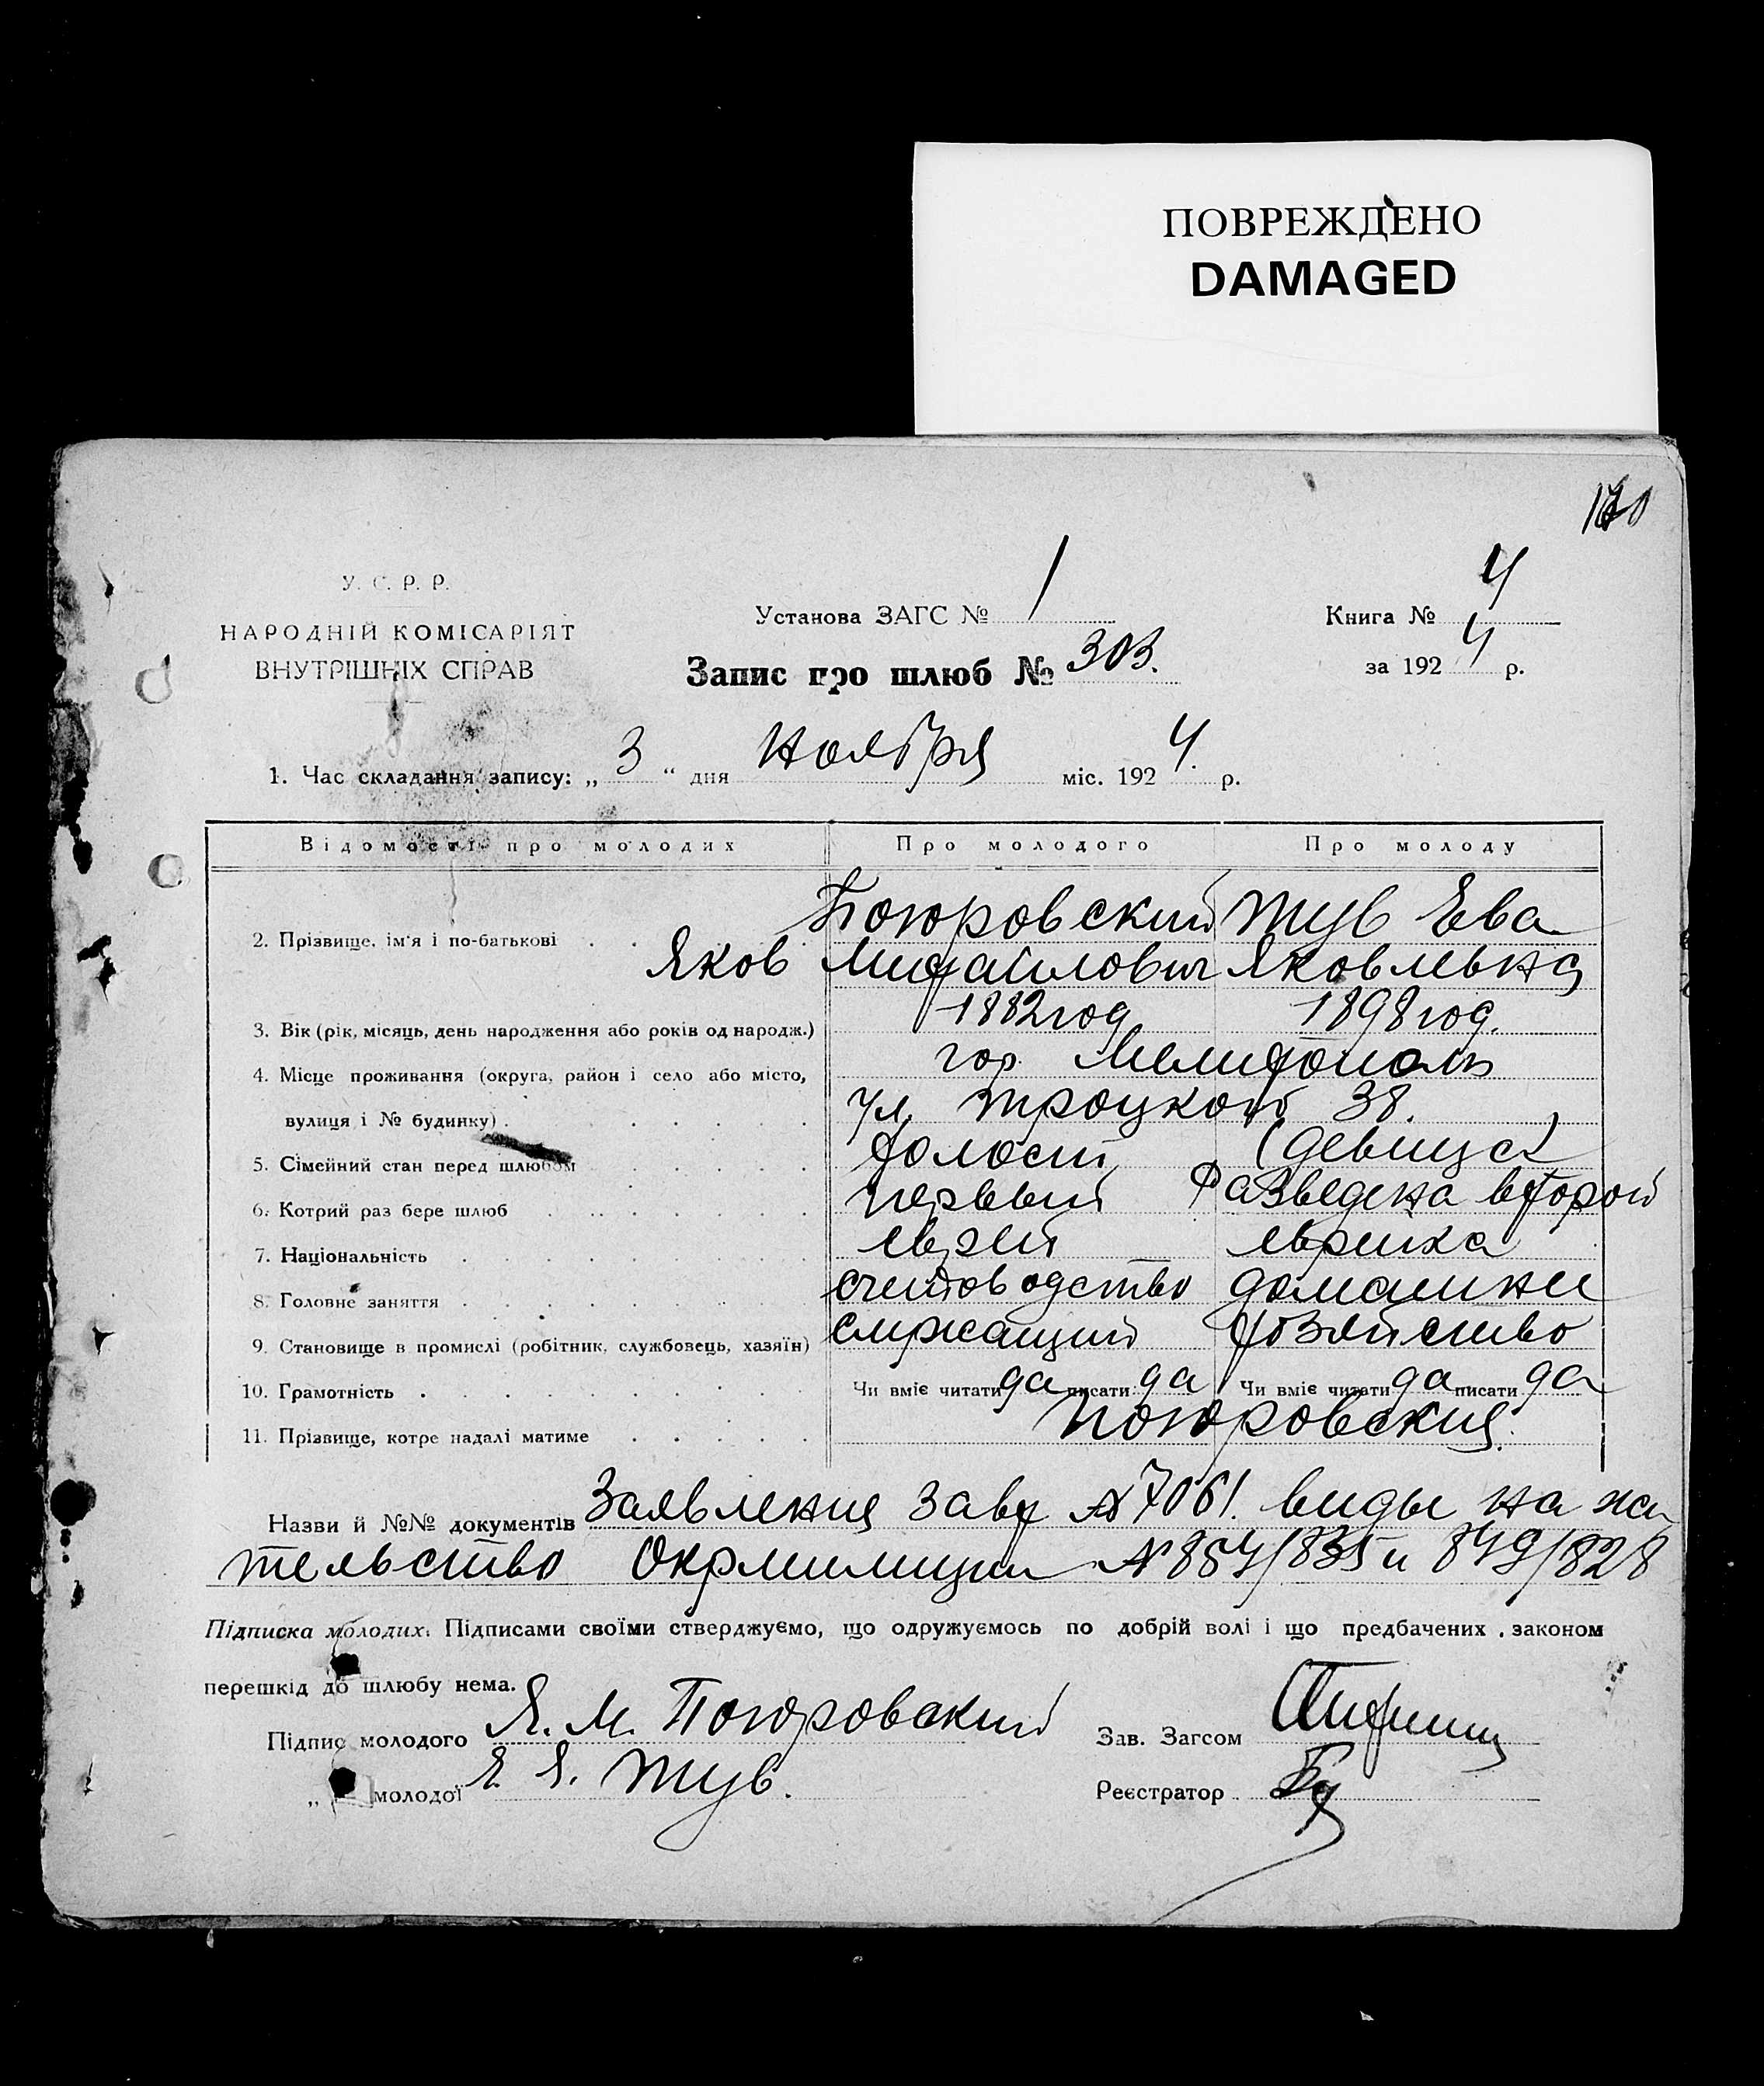 ПОВРЕЖДЕНО
DAMAGED
У. С. Р. Р.
НАРОДНІЙ КОМІСАРІЯТ
ВНУТРІШНІХ СПРАВ
Установа ЗАГС № 1
Книга № 4
за 1924 р.
Запис про шлюб № 303.
1. Час складання запису: „ 3 “ дня ноября міс. 1924. р.
Відомости про молодих Про молодого Про молоду
2. Прізвище, ім'я і по-батькові Погоровский Яков Михайлович Тув Ева Яковлевна
3. Вік (рік, місяць, день народження або років од народж.) 1882 год 1898 год.
4. Місце проживання (округа, район і село або місто, гор. Мелитополь
вулиця і № будинку) ул. Троцкого 38.
5. Сімейний стан перед шлюбом холост (девица)
6. Котрий раз бере шлюб первый разведена второй
7. Національність еврей еврейка
8. Головне заняття счетоводство домашнее
9. Становище в промислі (робітник, службовець, хазяїн) служащий хозяйство
10. Грамотність Чи вміє читати да писати да Чи вміє читати да писати да
11. Прізвище, котре надалі матиме Погоровския.
Назви й №№ документів Заявления №7061. виды на жи
тельство Окрмилиции №854/835 и 849/828
Підписка молодих. Підписами своїми стверджуємо, що одружуємось по добрій волі і що предбачених законом
перешкід до шлюбу нема.
Підпис молодого Я. М. Погоровский
Зав. Загсом
„ молодої Е. Я. Тув.
Реєстратор